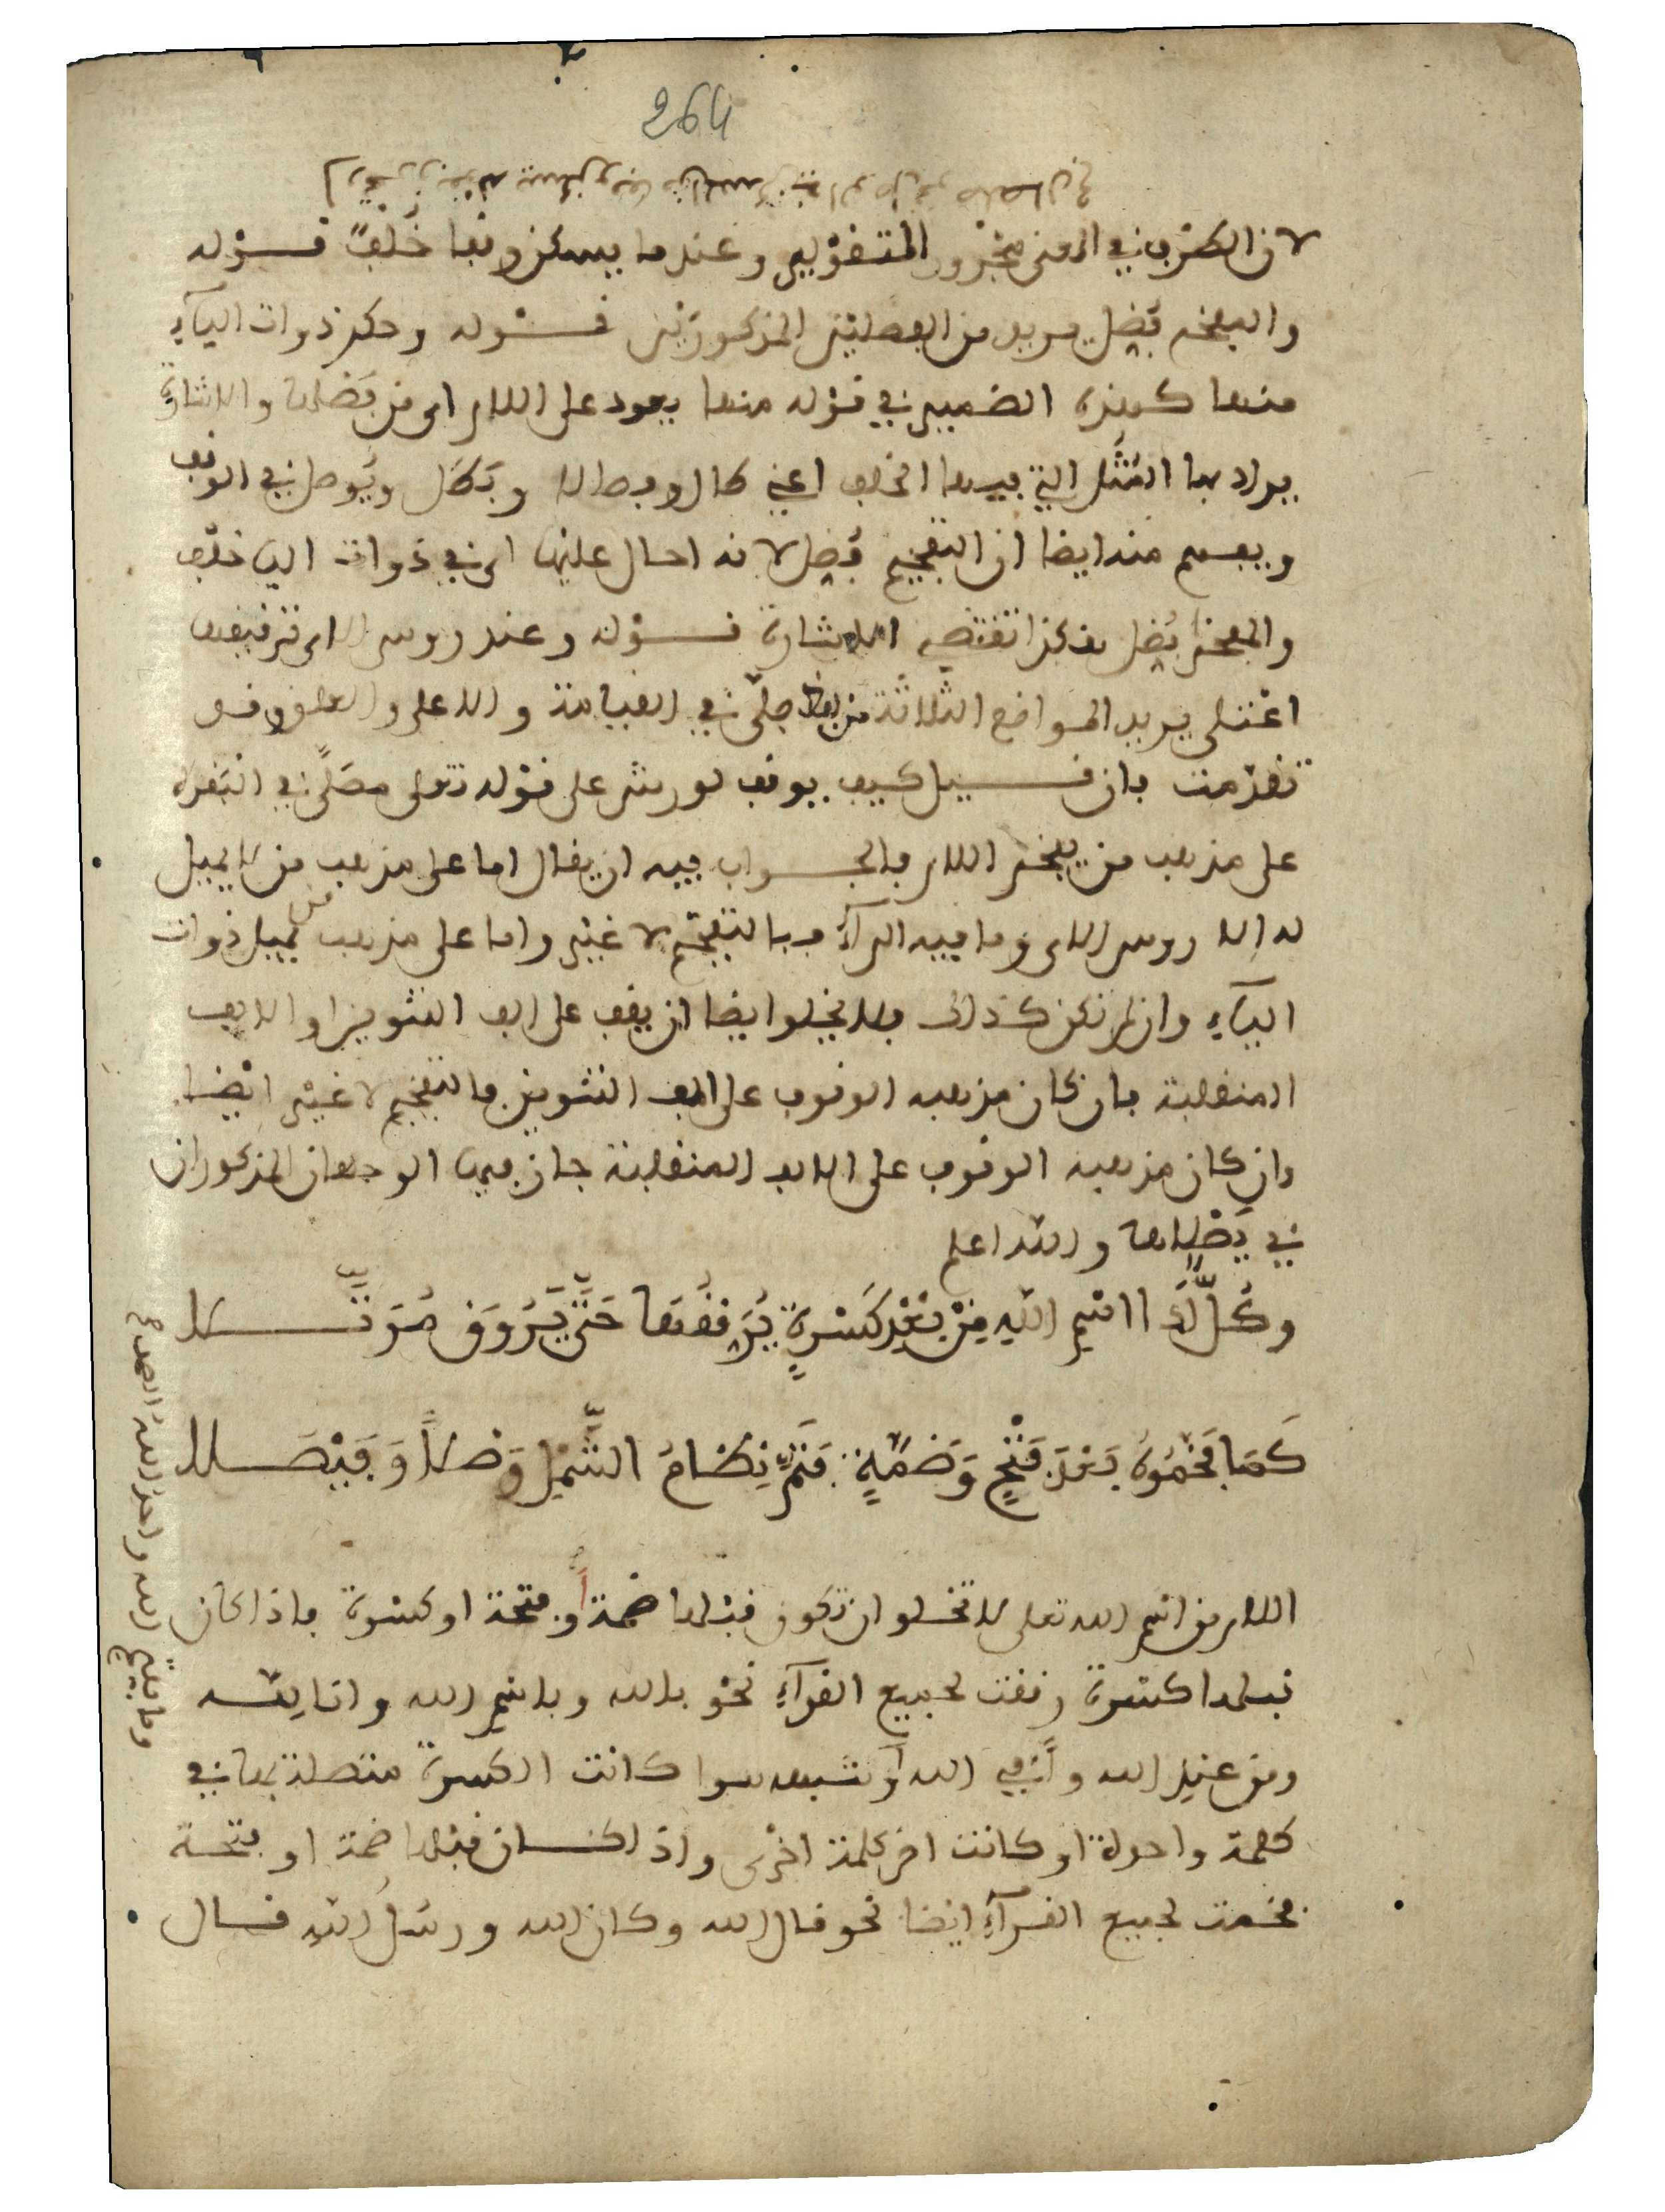 264
لان الظرف في المعنى مجرور المتقولين وعندما يسكن وقفا خلف قوله
والمفخم فضل يريد من الفصلين المذكورين قوله وحكم ذوات الياء
منها كهذه الضمير في قوله منها يعود على اللام اي من فضلها والاشارة
يراد بها المثل التي فيها الخلف اعني طال وفصالا وبطل ويوصل في الوقف
ويفهم منه ايضا ان التفخيم فضل لانه احال عليها اي في ذوات اليا خلف
والمفخم فضل هكذا تقتضيه الاشارة قوله وعند روس الاي ترقيقها
اعتلى يريد المواضع الثلاثة من لفظ صلى في القيامة والاعلى والعلق وقد
تقدمت فان قيل كيف يوقف لورش على قوله تعلى مصلى في البقرة
على مذهب من يفخم اللام فالجواب فيه ان يقال اما على مذهب من لا يميل
له الا روس الاي وما فيه الراء فبالتفخيم لا غير واما على مذهب من يميل ذوات
الياء وان لم تكن كذلك فلا يخلوا ايضا ان يقف على الف التنوين او الالف
المنقلبة فان كان مذهبه الوقوف على الف التنوين فالتفخيم لا غير ايضا
وان كان مذهبه الوقوف على الالف المنقلبة جاز فيها الوجهان المذكوران
في يصلاها والله اعلم
وَكُلٌّ لَدَا اسْمِ اللَّهِ مِنْ بَعْدِ كَسْرَةٍ يُرَقِّقُهَا حَتَّى يَرُوقَ مُرَتَّلا
كَمَا فَخَّمُوهُ بَعْدَ فَتْحٍ وَضَمَّةٍ فَتَمَّ نِظَامُ الشَّمْلِ وَصْلاً وَفَيْصَلا
اللام من اسم الله تعلى لا تخلوا ان تكون قبلها ضمة أو فتحة او كسرة فاذا كان
قبلها كسرة رققت لجميع القراء نحو بالله وباسم الله وانا لله
ومن عند الله وأفي الله أو شبهه سوا كانت الكسرة متصلة بها في
كلمة واحدة او كانت اخر كلمة اخرى واذا كان قبلها ضمة او فتحة
فخمت لجميع القراء ايضا نحو قال الله وكان الله ورسل الله قال
وما يفتح الله واحد الله الصمد صح